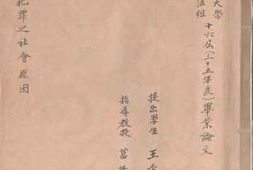 大學
法組
十六屆(二十五年度)畢業論文
提出學生 王
指導教授
犯罪之社會原因